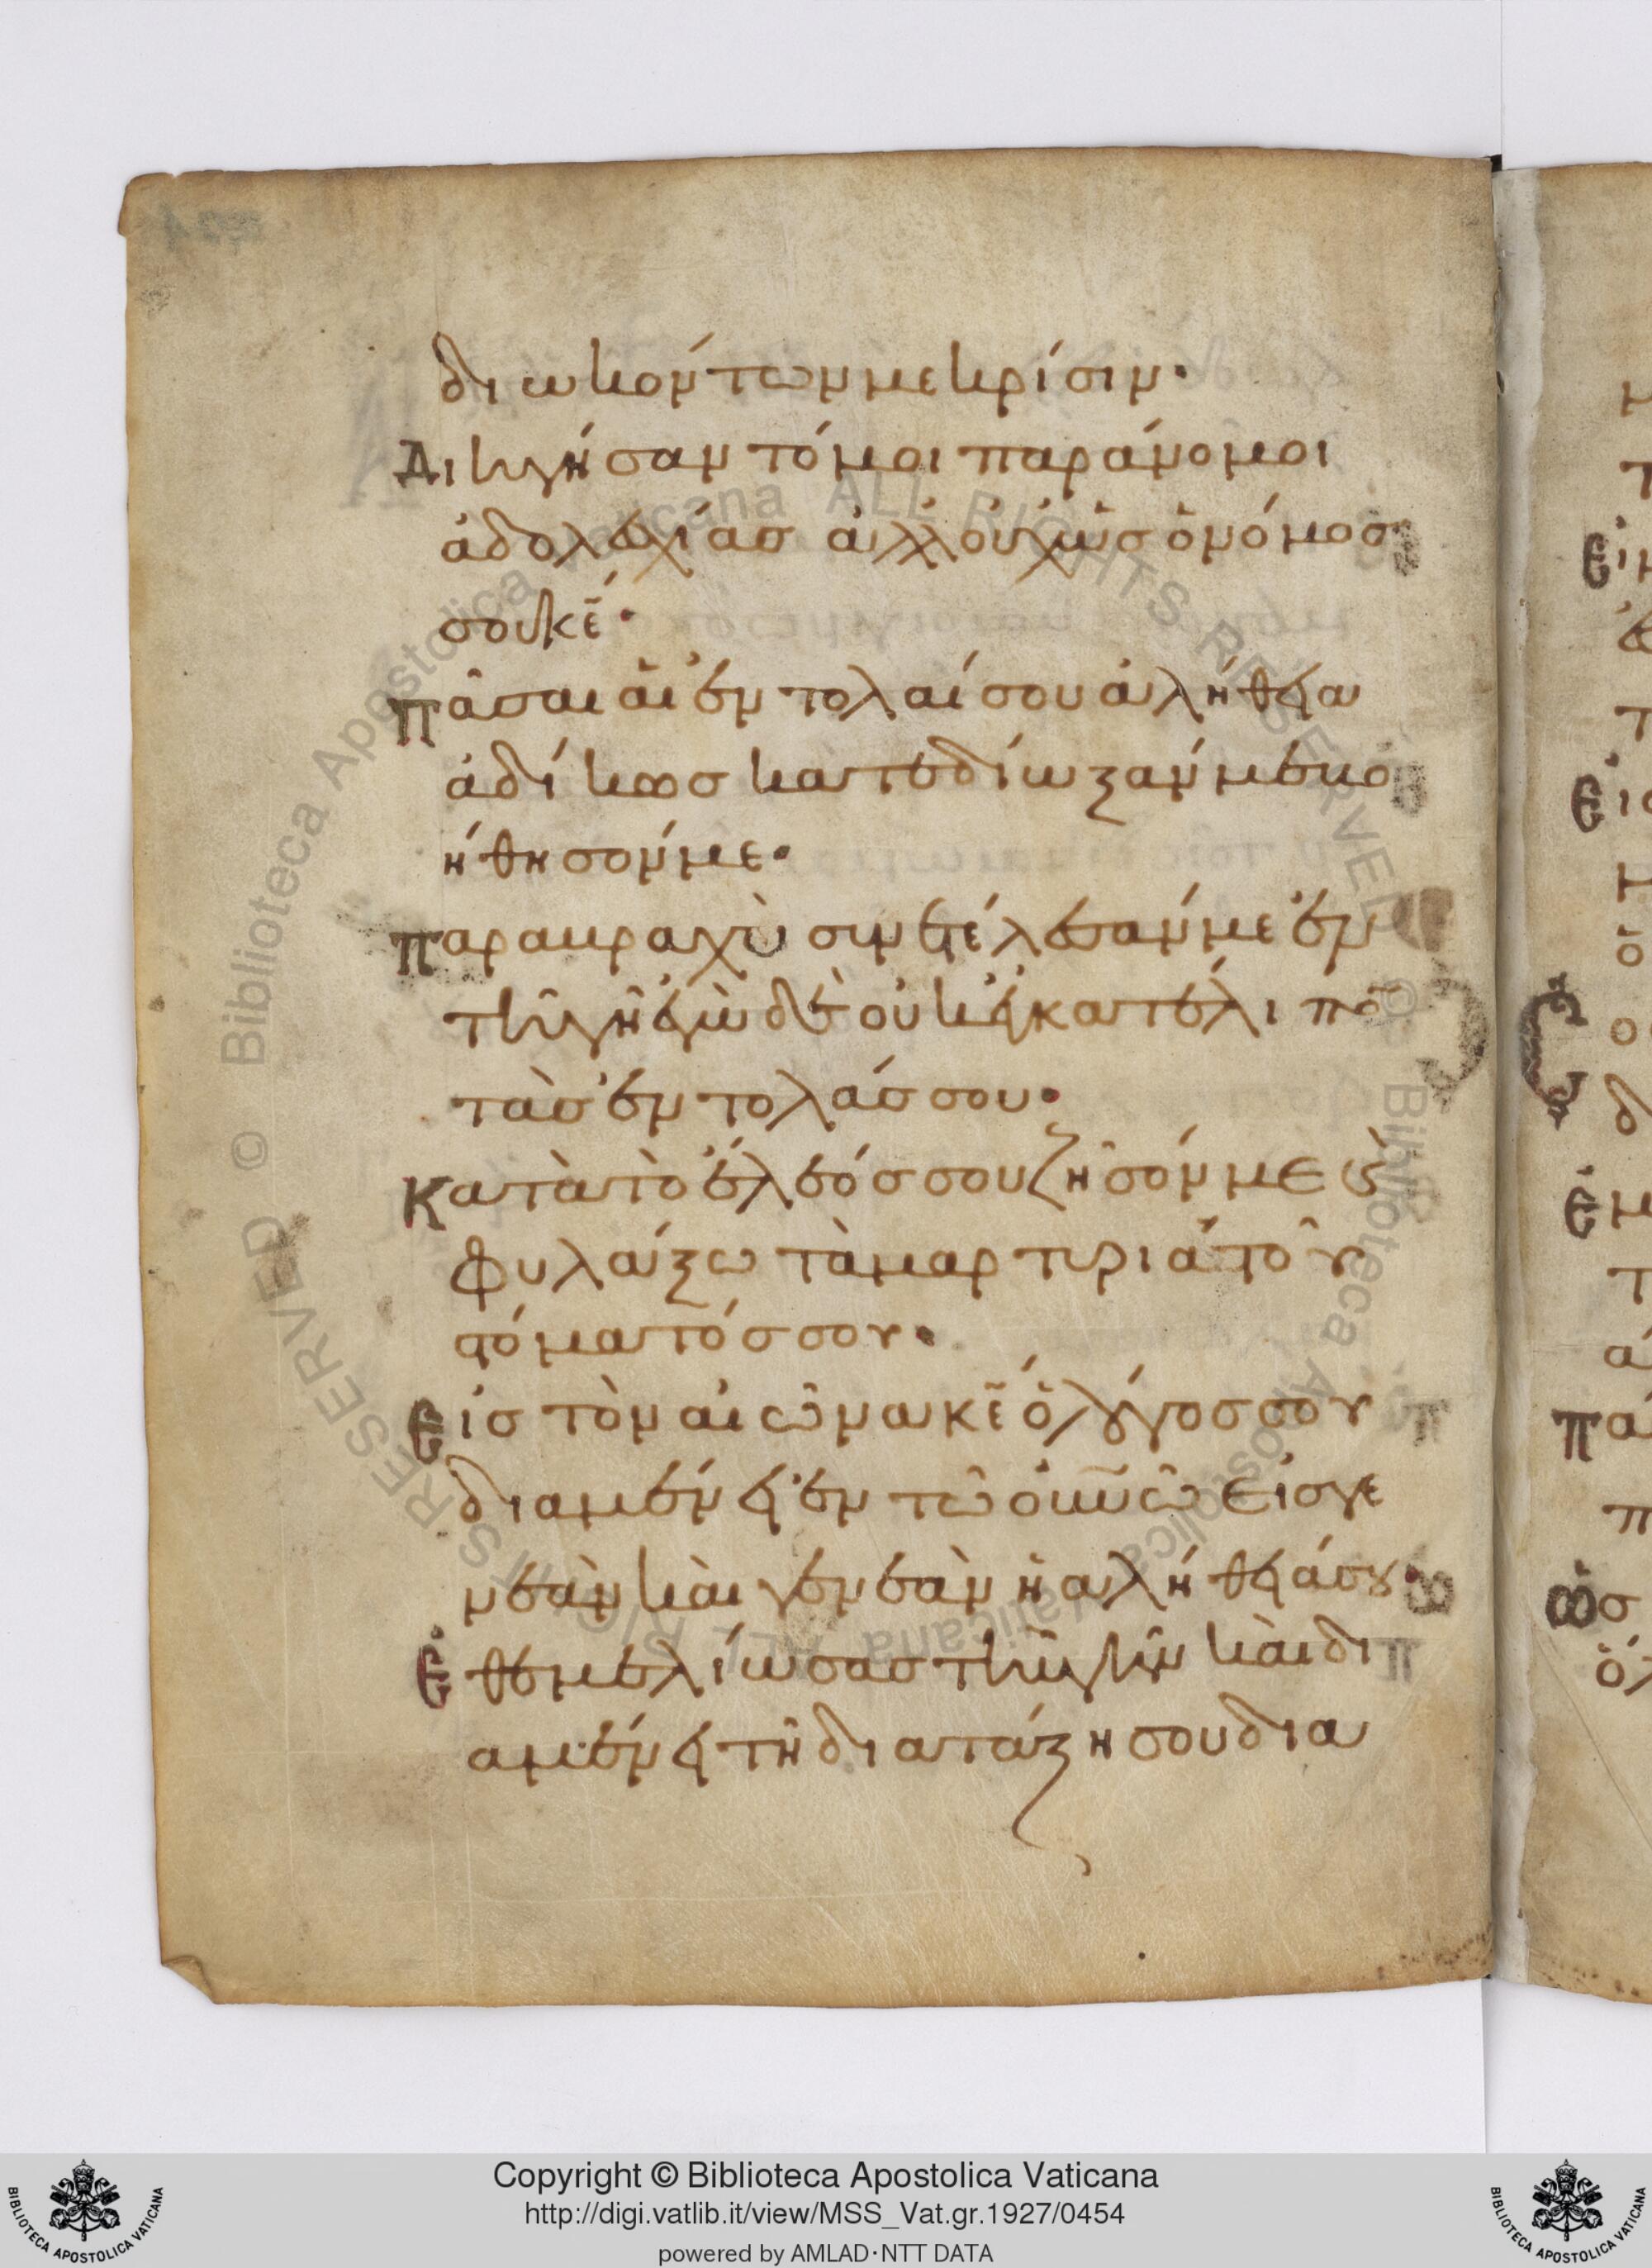 διωκόντων με κρίσιν·
Διηγήσαντό μοι παράνομοι
ἀδολεσχίας ἀλλ' οὐχ ὡς ὁ νόμος
σου κε·
Πᾶσαι αἱ ἐντολαί σου ἀλήθεια
ἀδίκως κατεδίωξάν με βο
ήθησόν με·
Παρα βραχὺ συνετέλεσάν με ἐν
τῆ γῆ ἐγὼ δὲ οὐκ ἐγκατέλιπον
τὰς ἐντολάς σου·
Κατὰ τὸ ἔλεός σου ζῆσόν με καὶ
φυλάξω τὰ μαρτύρια τοῦ
στόματός σου·
Εἰς τὸν αἰῶνα κε ὁ λόγος σου
διαμένει ἐν τῶ οὐνῶ εἰς γε
νεὰν καὶ γενεὰν ἡ ἀλήθειά σου·
Ἐθεμελίωσας τὴν γῆν καὶ δι
αμένει τῆ διατάξη σου δια
Copyright © Biblioteca Apostolica Vaticana
http://digi.vatlib.it/view/MSS_Vat.gr.1927/0454
powered by AMLAD·NTT DATA
BIBLIOTECA APOSTOLICA VATICANA
BIBLIOTECA APOSTOLICA VATICANA